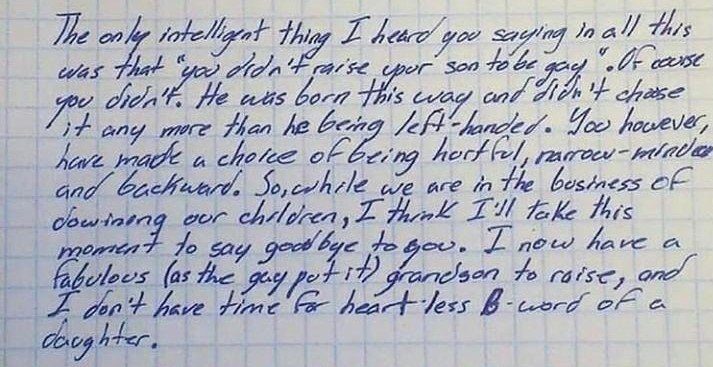 The only intelligent thing I heard you saying in all this
was that "you didn't raise your son to be gay". Of course
you didn't. He was born this way and didn't choose
it any more than he being left-handed. You however,
have made a choice of being hurtful, narrow-minded
and backward. So, while we are in the business of
dowineng our children, I think I'll take this
moment to say goodbye to you. I now have a
fabulous (as the gay put it) grandson to raise, and
I don't have time for heart-less B-word of a
daughter.